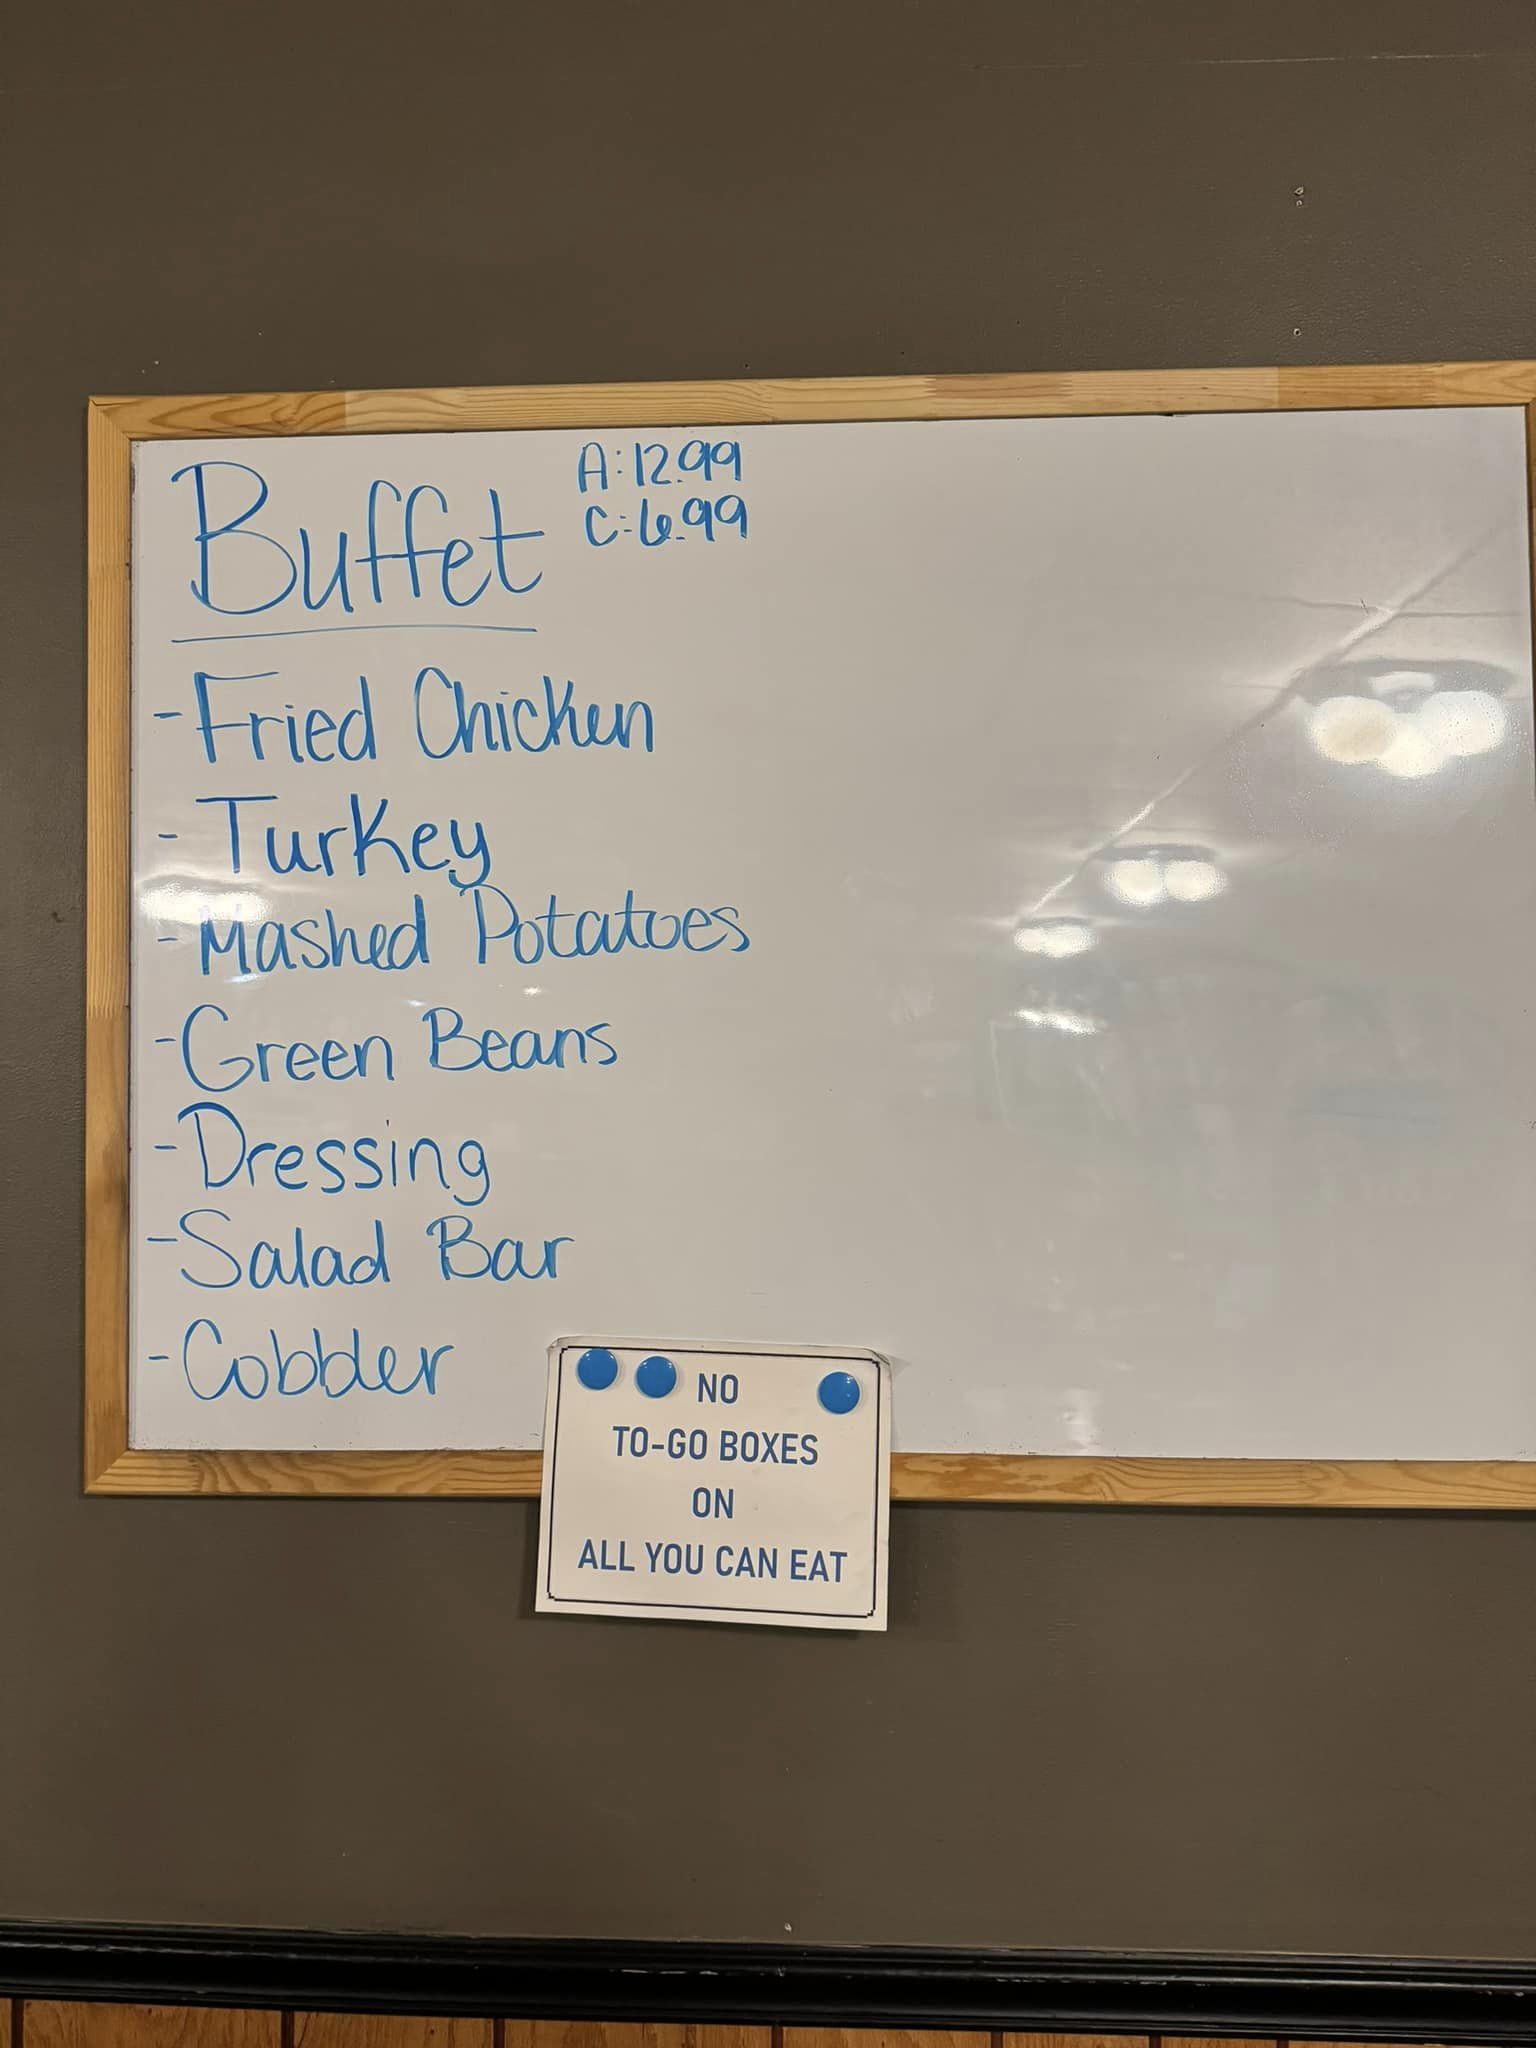 Buffet
A: 12.99
C: 6.99
- Fried Chicken
- Turkey
- Mashed Potatoes
- Green Beans
- Dressing
- Salad Bar
- Cobbler
NO
TO-GO BOXES
ON
ALL YOU CAN EAT